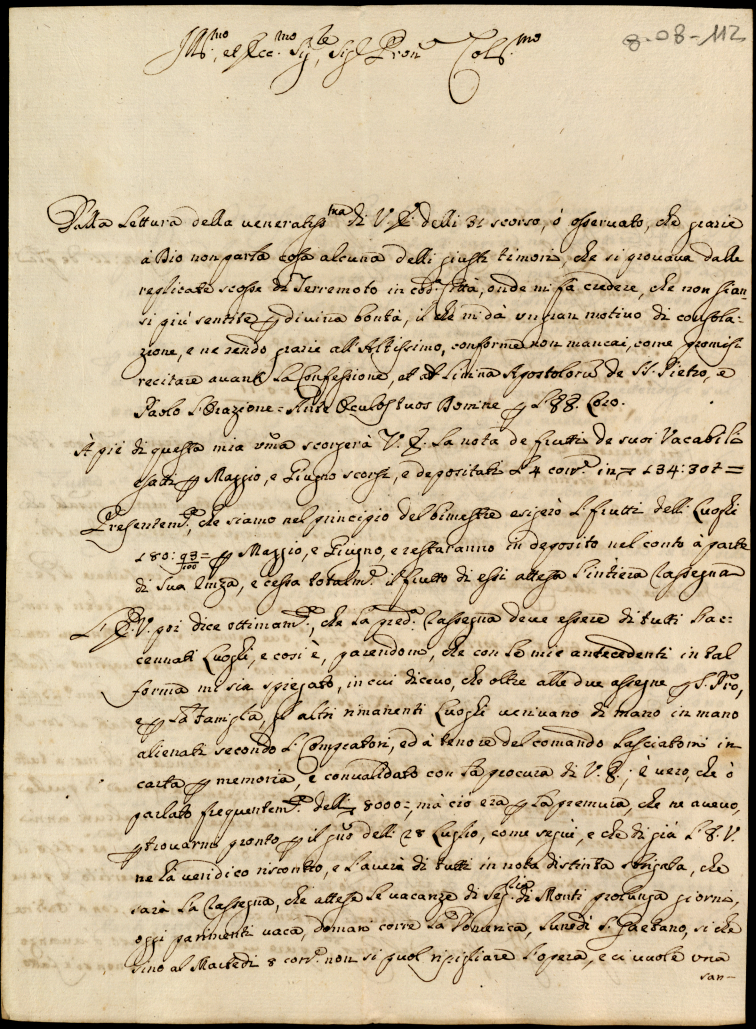 8-08-112
Ill.mo, et Ecc.mo Sig.re, Sig.r Pron.e Col.mo
Dalla Lettura della veneratiss.ma di V. E. delli 31 scorso, ò osservato, che grazie
à Dio non parla cosa alcuna delli giusti timori, che si provava dalle
replicate scosse di Terremoto in cod. Città, onde mi fà credere, che non sian-
si più sentite p divina bontà, il che mi dà un gran motivo di consola-
zione, e ne rendo grazie all'Altissimo, conforme non mancai, come promisi
recitare avanti La Confessione, et ad Limina Apostoloru de SS. Pietro, e
Paolo L'Orazione = Ante Oculos tuos Domine p L'EE. Loro.
À piè di questa mia uma scorgerà V. E. La nota de frutti de suoi Vacabili
esatti p Maggio, e Giugno scorsi, e depositati L 4 corr.e in 134:30
Presentem.e, che siamo nel principio del bimestre esigerò L. frutti delli Luoghi
180: 93/100 = p Maggio, e Giugno, e restaranno in deposito nel conto à parte
di Sua, e cessa totalm.e il frutto di essi attesa L'intiera Rassegna
L'E. V. poi dice ottimam.e, che La pred.a Rassegna deve essere di tutti L'ac-
cennati Luoghi, e così è, parendomi, che con Le mie antecedenti in tal
forma mi sia spiegato, in cui dicevo, che oltre alle due assegne p S. Pro,
e p La Famiglia, gl'altri rimanenti Luoghi venivano di mano in mano
alienati secondo L. Compratori, ed à tenore del comando Lasciatomi in
carta p memoria, e convalidato con La procura di V. E.; è vero, che ò
parlato frequentem.e delli 8000=, mà ciò era p La premura, che ne avevo,
p trovarmi pronto p il giro delli 28 Luglio, come seguì, e che di già L'E. V.
ne hà veridico riscontro, e L'averà di tutti in nota distinta, che
sarà La Rassegna, che attese Le vacanze di Seg.ria di Monti prolunga giorni,
oggi parimenti vaca, domani corre La Domenica, Lunedì S. Gaetano, si che
sino al Martedì 8 corr.e non si puol ripigliare L'opera, e ci vuole una
san-